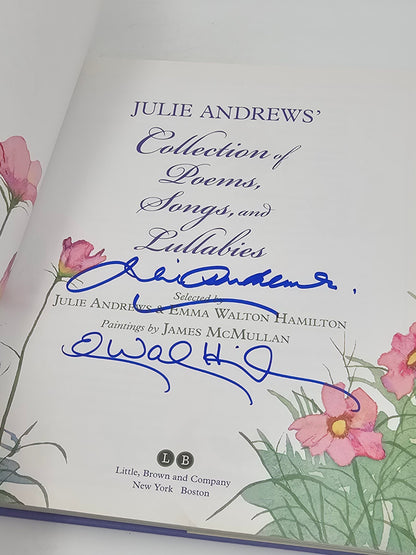 JULIE ANDREWS'
Collection of
Poems,
Songs, and
Lullabies
Julie Andrews.
Selected by
JULIE ANDREWS & EMMA WALTON HAMILTON
Paintings by JAMES MCMULLAN
E Wal Hil
L B
Little, Brown and Company
New York Boston